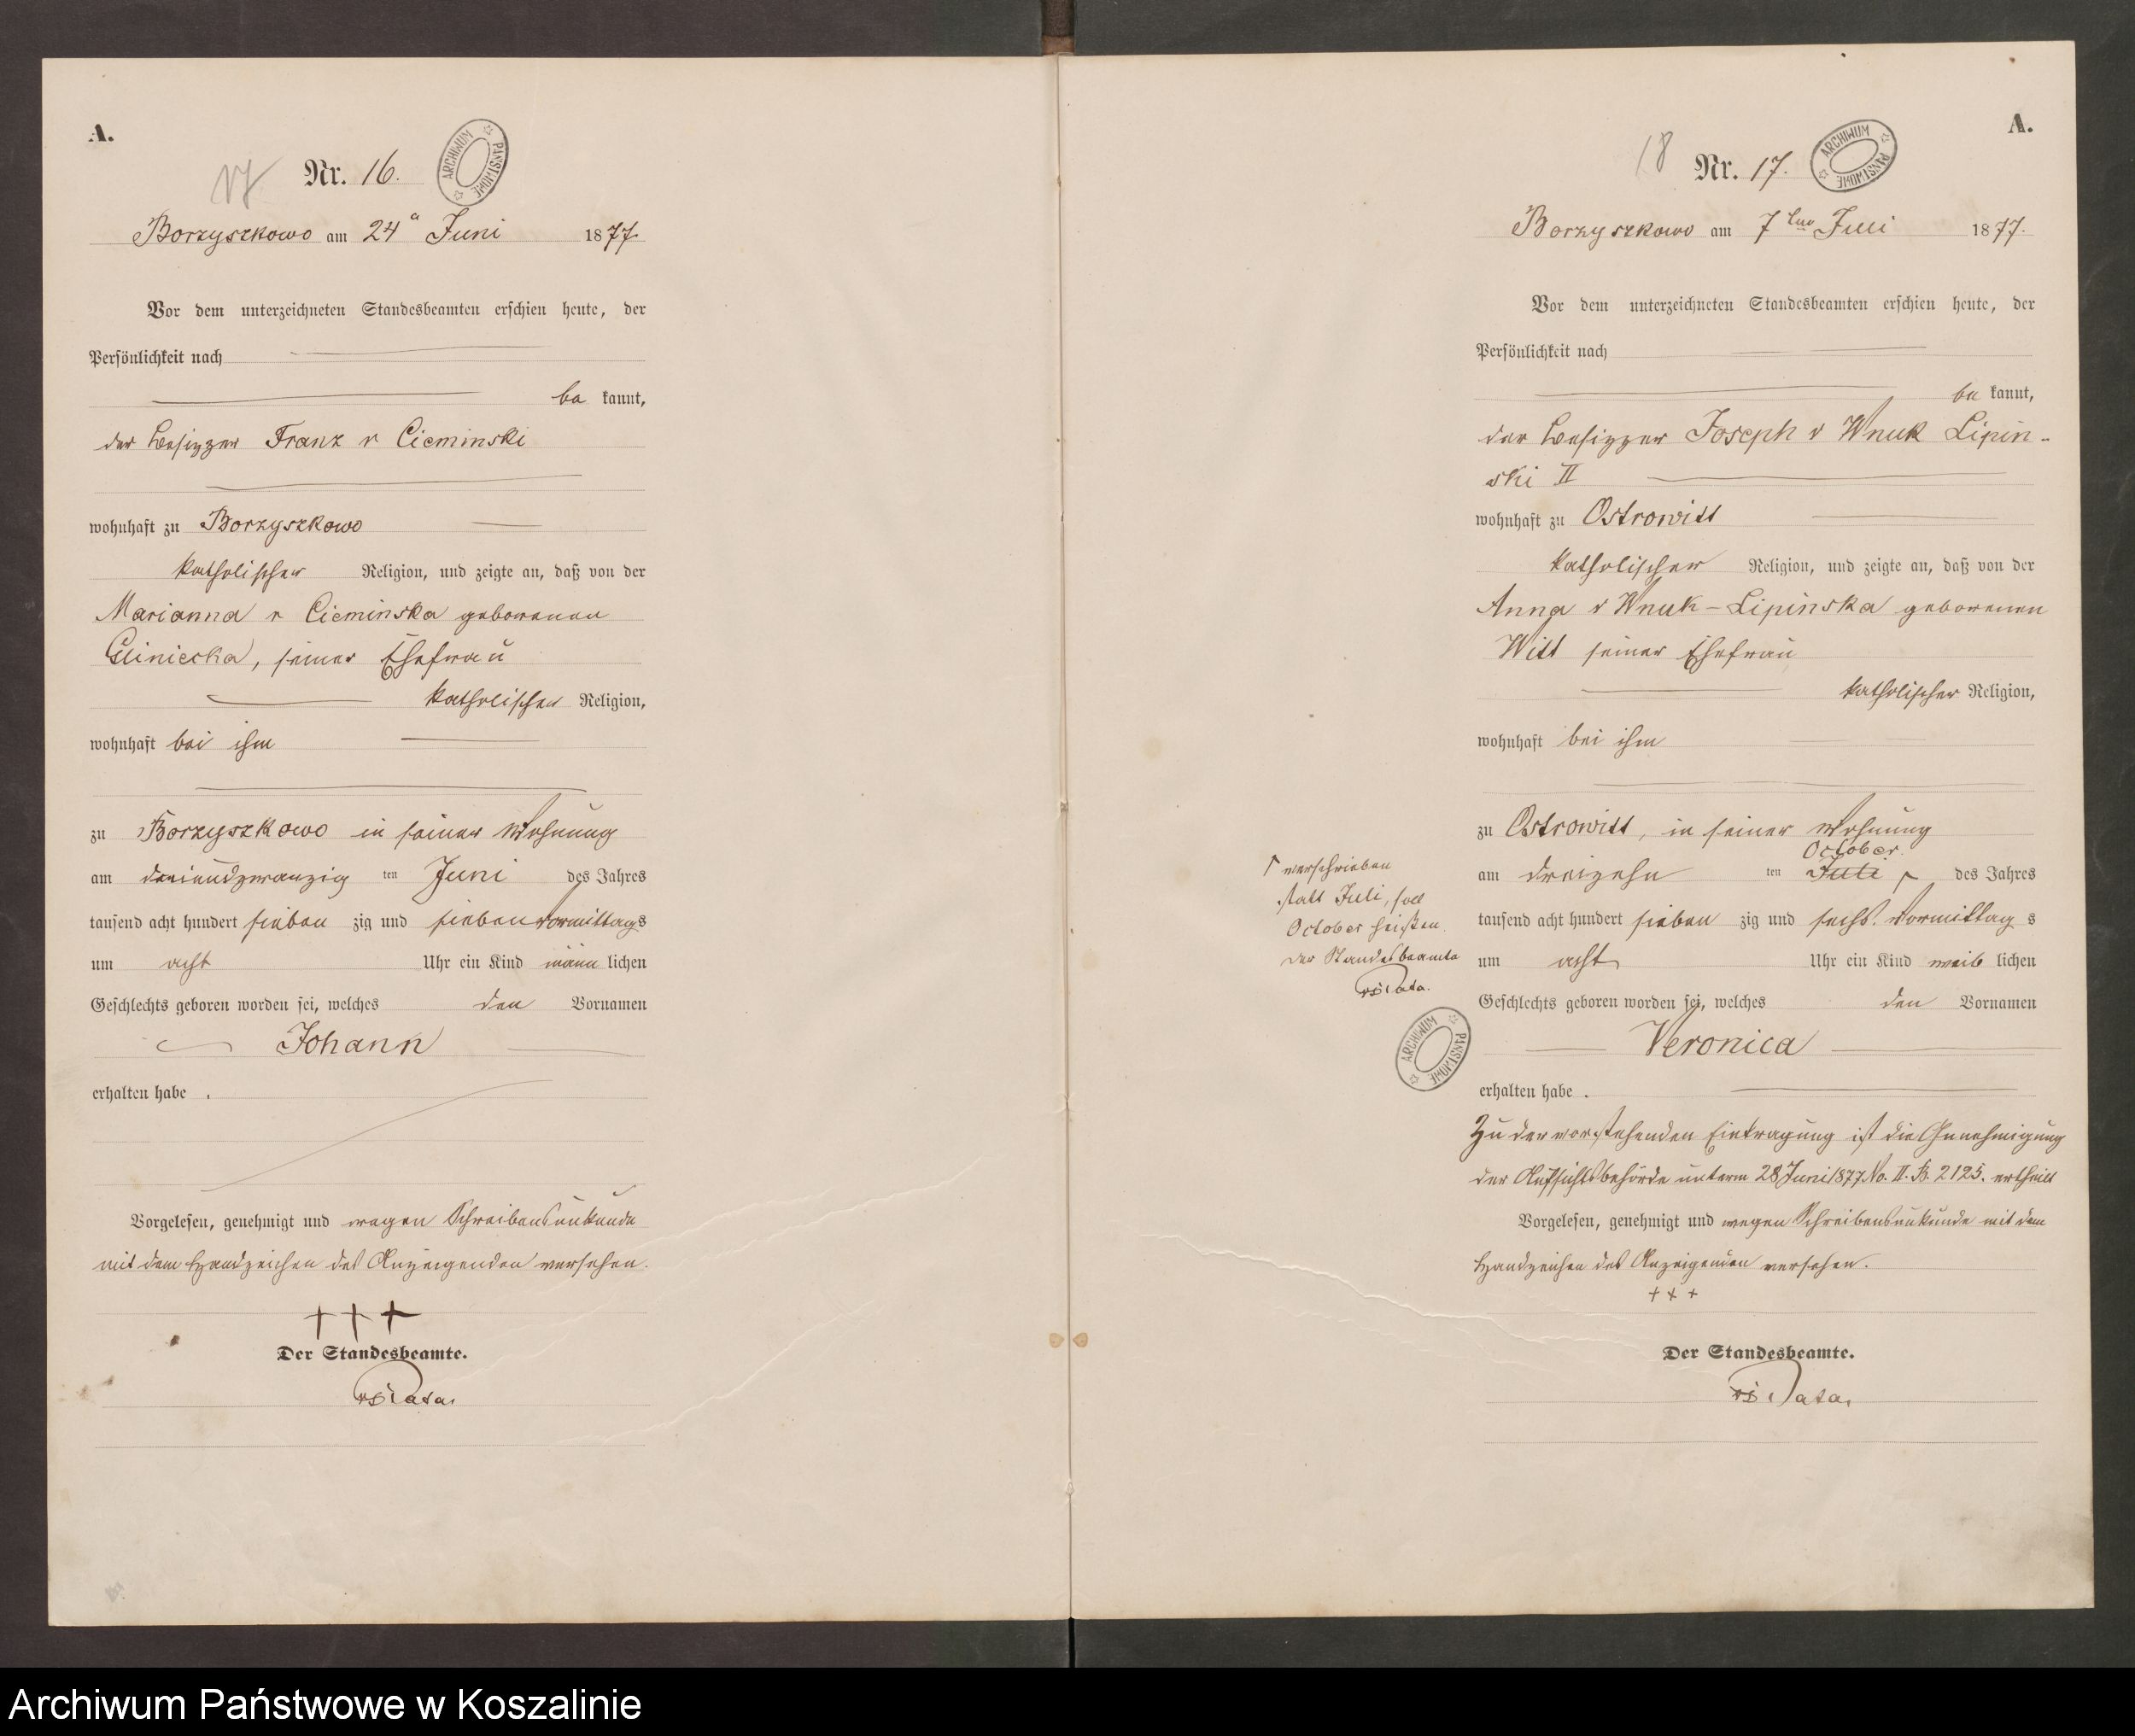 A.
17
Nr. 16.
ARCHIWUM PAŃSTWOWE
Borzyszkowo am 24 Juni 1877.
Vor dem unterzeichneten Standesbeamten erschien heute, der
Persönlichkeit nach
be kannt,
der Besitzer Franz v Cieminski
wohnhaft zu Borzyszkowo
katholischer Religion, und zeigte an, daß von der
Marianna v Cieminska geborenen
Gliniecka, seiner Ehefrau
katholischer Religion,
wohnhaft bei ihm
zu Borzyszkowo in seiner Wohnung
am dreiundzwanzig ten Juni des Jahres
tausend acht hundert sieben zig und sieben Vormittags
um acht Uhr ein Kind männ lichen
Geschlechts geboren worden sei, welches den Vornamen
Johann
erhalten habe .
Vorgelesen, genehmigt und wegen Schreibensunkunde
mit dem Handzeichen des Anzeigenden versehen.
+++
Der Standesbeamte.
A.
18
Nr. 17.
ARCHIWUM PAŃSTWOWE
Borzyszkowo am 7 Juli 1877.
Vor dem unterzeichneten Standesbeamten erschien heute, der
Persönlichkeit nach
be kannt,
der Besitzer Joseph v Wnuk Lipin-
ski II
wohnhaft zu Ostrowitt
katholischer Religion, und zeigte an, daß von der
Anna v Wnuk-Lipinska geborenen
Witt seiner Ehefrau
katholischer Religion,
wohnhaft bei ihm
zu Ostrowitt, in seiner Wohnung
October
am dreizehn ten Juli des Jahres
tausend acht hundert sieben zig und sechs. Vormittag s
um acht Uhr ein Kind weib lichen
Geschlechts geboren worden sei, welches den Vornamen
Veronica
erhalten habe .
Zu der vorstehenden Eintragung ist die Genehmigung
der Aufsichtsbehörde unterm 28 Juni 1877 No. II. B. 2125. ertheilt
Vorgelesen, genehmigt und wegen Schreibensunkunde mit dem
Handzeichen des Anzeigenden versehen.
+++
Der Standesbeamte.
verschrieben
statt Juli, soll
October heißen.
Der Standesbeamte
ARCHIWUM PAŃSTWOWE
Archiwum Państwowe w Koszalinie